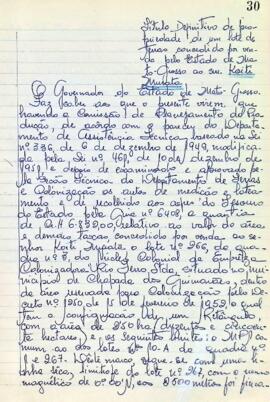 30
Título Definitivo de pro-
priedade de um lote de
terras concedido por ven-
da pelo Estado de Ma-
to-Grosso ao snr. Koite
O Governador do Estado de Mato Grosso.
Faz saber aos que o presente virem, que
havendo a Comissão de Planejamento da Pro-
dução, de acordo com o parecer do Departamen-
to de Assistência Técnica, baseado na Lei
nº 336, de 6 de dezembro de 1949, modifica-
da pela Lei nº 461, de 10 de dezembro de
1951, e depois de examinado e aprovado pe-
la Secção Técnica do Departamento de Terras
e Colonização os autos de medição e lotea-
mento e de recolhidos aos cofres do Tesouro
do Estado pela Guia nº 6408, a quantia
de relativo ao valor da área
e demais taxas concedido por venda ao se-
nhor Koite o lote nº 266, da qua-
dra nº 8, do Núcleo Colonial da Empresa
Colonizadora Rio Ferro Ltda, situado no mu-
nicípio de Chapada dos Guimarães, dentro
da área reservada para Colonização pelo De-
creto nº 1250 de 15 de fevereiro de 1952, o qual
tem a configuração de um Retângulo,
com a área de 250 ha (duzentos e cincoenta
hectares), e os seguintes limites: o MP1 co-
mum ao dos lotes nº 10-A da quadra nº
1 e 267. Deste marco, segue-se com uma li-
nha sêca, limítrofe do lote nº 267, com o rumo
magnético de 0º00'N, aos 2500 metros foi finca-